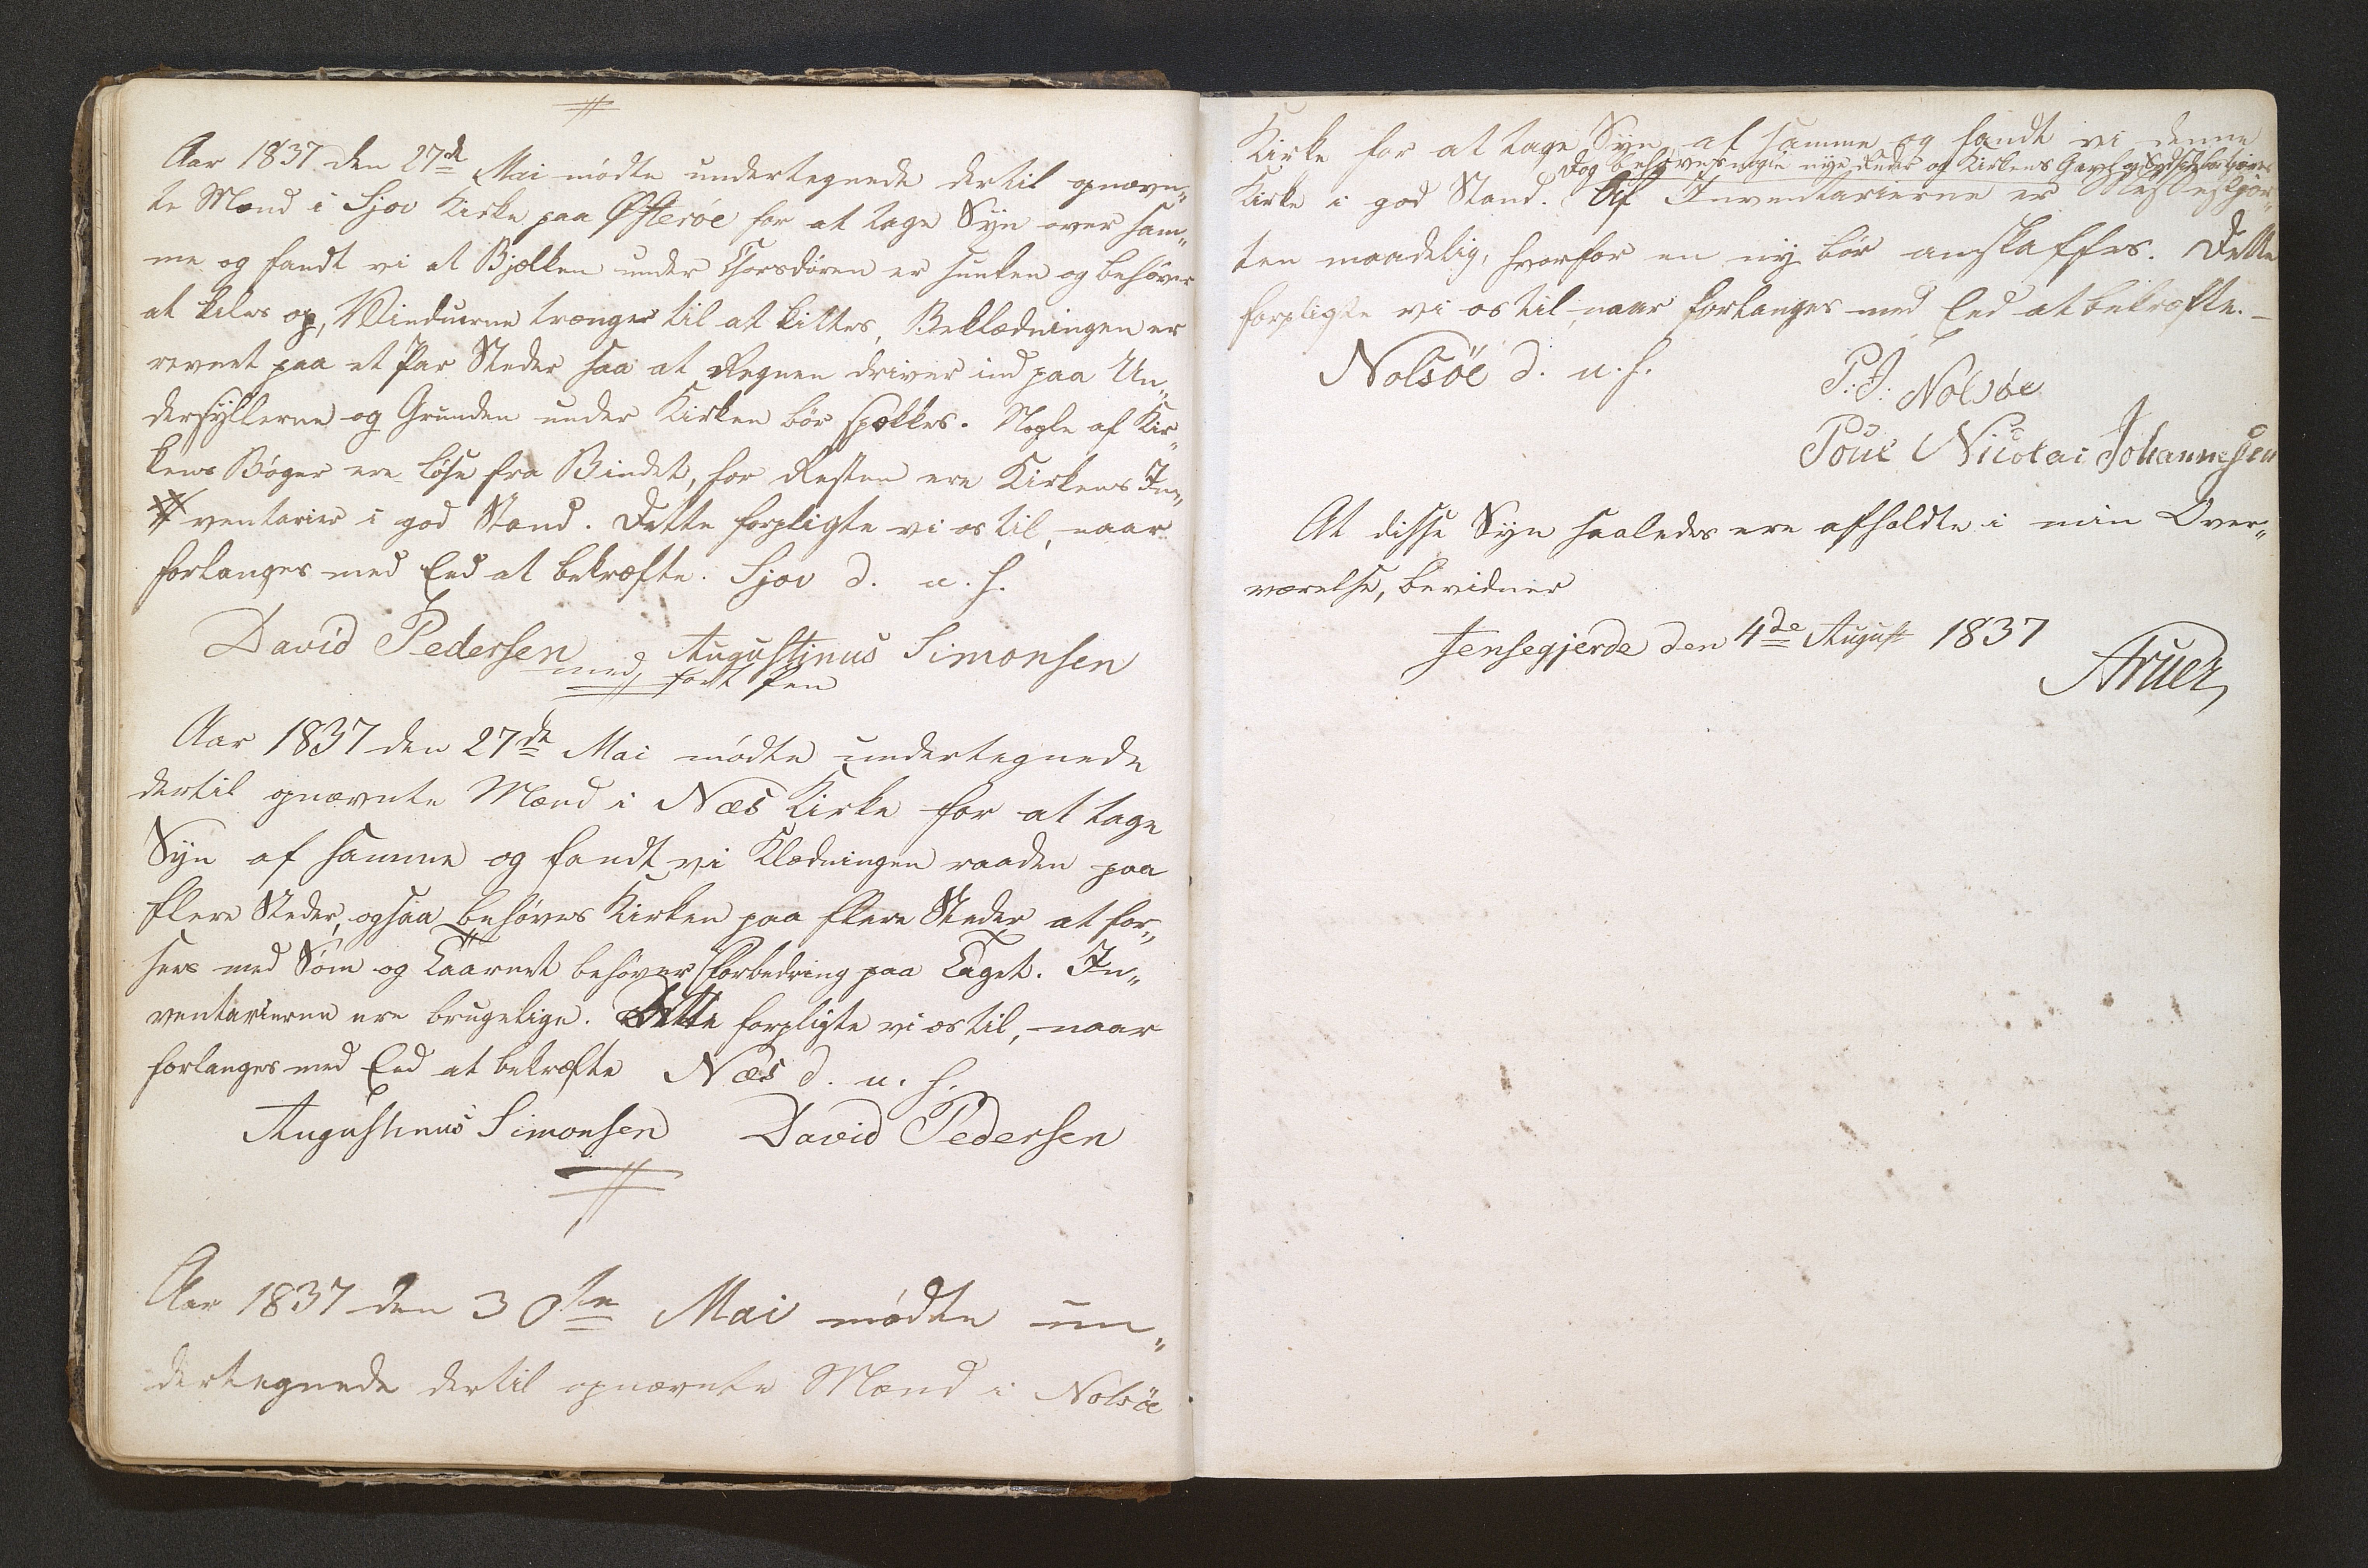 Aar 1837 den 27de Mai mödte undertegnede dertil opnævn„
te Mænd i Sjov Kirke paa Østeröe for at tage Syn over sam„
me og fandt vi at Bjælken under Chorsdören er sunken og behöver
at kiles op, Vinduerne trænger til at kittes, Beklædningen er
revnet paa et Par Steder saa at Regnen driver ind paa Un„
dersyllerne og Grunden under Kirken bör spækkes. Nogle af Kir„
kens Böger ere löse fra Bindet, for Resten ere Kirkens In„
ventarier i god Stand. Dette forpligte vi os til, naar
forlanges med Eed at bekræfte. Sjov d. u. s.
David Pedersen Augustinus Simonsen
med fört Pen
Aar 1837 den 27de Mai mödte undertegnede
dertil opnævnte Mænd i Næs Kirke for at tage
Syn af samme og fandt vi Klædningen raaden paa
flere Steder, ogsaa behöves Kirken paa flere Steder at for„
sees med Söm og Taarnet behöver Forbedring paa Taget. In„
ventarierne ere brugelige. Dette forpligte vi os til, naar
forlanges med Eed at bekræfte Næs d. u. s.
Augustinus Simonsen David Pedersen
Aar 1837 den 30te Mai mödte un„
dertegnede dertil opnævnte Mænd i Nolsöe
Kirke for at tage Syn af samme og fandt vi denne
Dog behöves nogle nye Ruder og Kirkens Gavl og Sydside
Kirke i god Stand. Af Inventarierne er Messeskjor„
ten maadelig, hvorfor en ny bör anskaffes. Dette
forpligte vi os til, naar forlanges med Eed at bekræfte.
Nolsöe d. u. s.
P: J: Nolsöe
Poul Nicolai Johannesen
At disse Syn saaledes ere afholdte i min Over„
værelse, bevidner
Jensegjerde den 4de August 1837